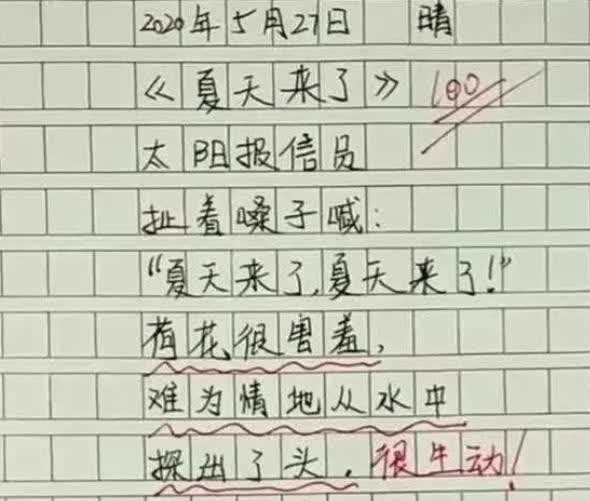 2020年5月27日 晴
《夏天来了》 100
太阳报信员
扯着嗓子喊:
“夏天来了,夏天来了!”
荷花很害羞,
难为情地从水中
探出了头。很生动!